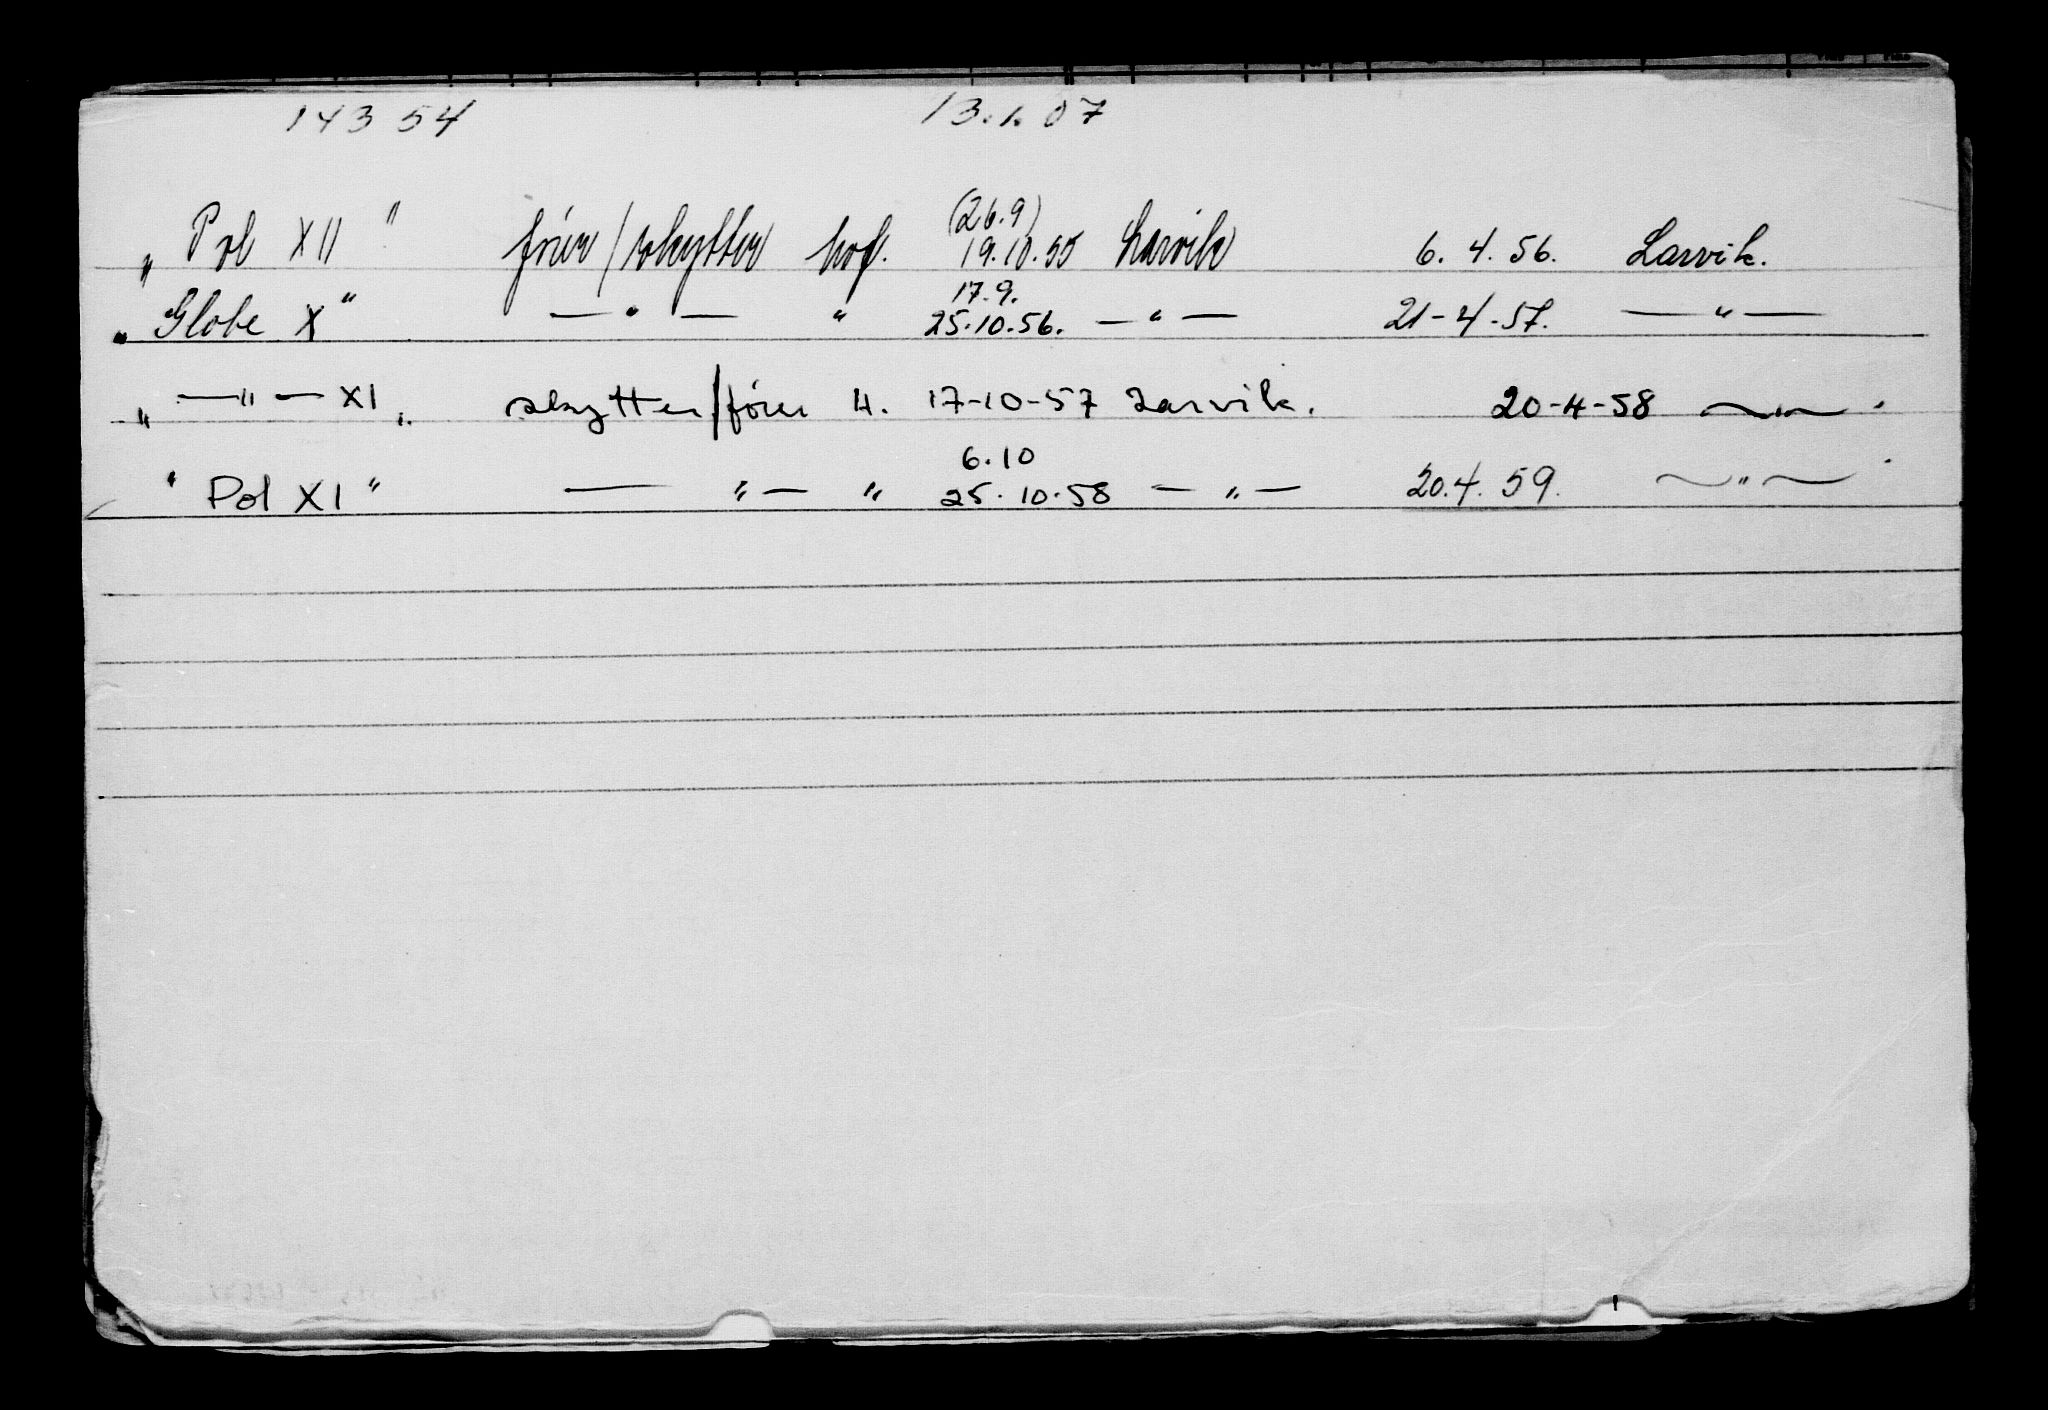 14354 13.1.07
„ Pol XII " fører / skytter hvf. (26.9) 19.10.55 Larvik 6. 4. 56. Larvik.
„ Globe X " — " — " 17.9. 25.10.56. — " — 21-4-57. — " —
„ — " — XI „ skytter/fører H. 17-10-57 Larvik. 20-4-58 — " — .
" Pol XI " — " — " 6.10 25.10.58 — " — 20.4.59. — " — .